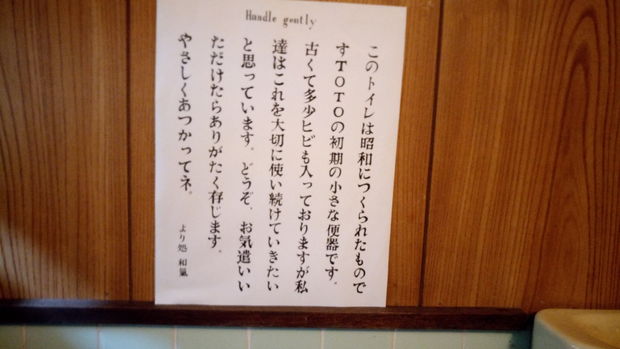 Handle gently
このトイレは昭和につくられたもので
すTOTOの初期の小さな便器です。
古くて多少ヒビも入っておりますが私
達はこれを大切に使い続けていきたい
と思っています。どうぞ、お気遣いい
ただけたらありがたく存じます。
やさしくあつかってネ。
より処 和氣